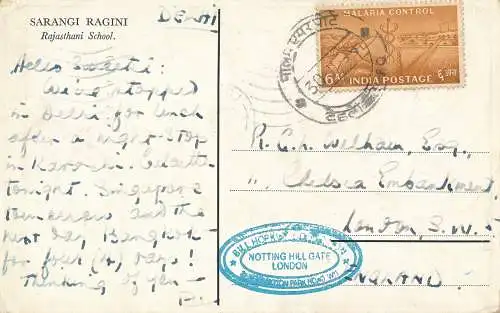 SARANGI RAGINI
Rajasthani School.
DELHI
Hello Sweetie:
We've stopped
in Delhi for lunch
after a night-stop
in Karachi. Calcutta
tonight. Singapore
tomorrow and the
next day Bangkok
for four (4) days!
Thinking of you —
P.
MALARIA CONTROL
6 AS
INDIA POSTAGE
६ आना
R. C. L. Welham, Esq.,
Chelsea Embankment,
London, S.W.
ENGLAND!
NOTTING HILL GATE
LONDON